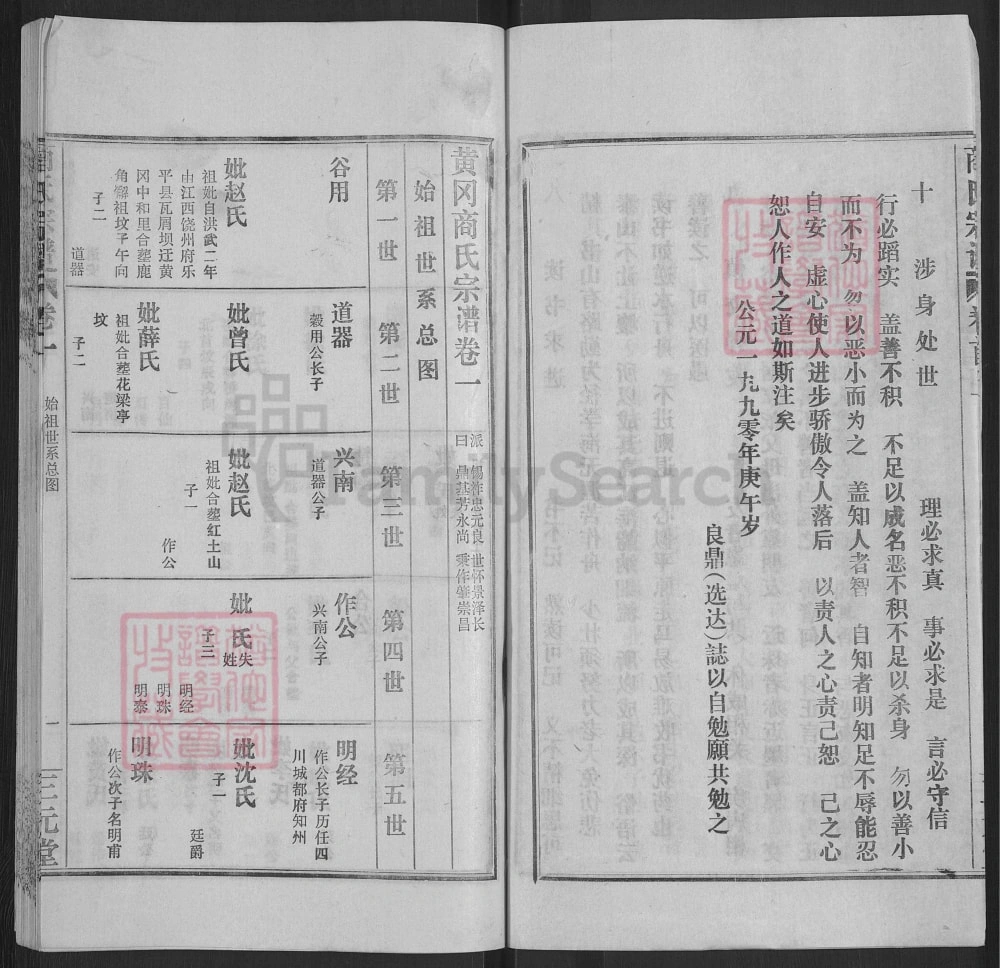 十　涉身处世
理必求真　事必求是　言必守信
行必蹈实　盖善不积　不足以成名恶不积不足以杀身　勿以善小
而不为　勿以恶小而为之　盖知人者智　自知者明知足不辱能忍
自安　虚心使人进步骄傲令人落后　以责人之心责己恕　己之心
恕人作人之道如斯注矣
公元一九九零年庚午岁
良鼎(选达)誌以自勉願共勉之
黄冈商氏宗谱卷一
派曰　锡祚忠元良　世怀景泽长
鼎基芳永尚　秉作肇崇昌
始祖世系总图
第一世
第二世
第三世
第四世
第五世
谷用
妣赵氏
祖妣自洪武二年
由江西饶州府乐
平县瓦屑坝迁黄
冈中和里合塟鹿
角觧祖坟子午向
子二
道器
道器
榖用公长子
妣曾氏
妣薛氏
祖妣合塟花梁亭
坟
子二
兴南
道器公子
妣赵氏
祖妣合塟红土山
子一
作公
作公
兴南公子
妣　氏失姓
子三
明经
明珠
明泰
明经
作公长子历任四
川城都府知州
妣沈氏
子一
廷爵
明珠
作公次子名明甫
始祖世系总图
一
三元堂
FamilySearch